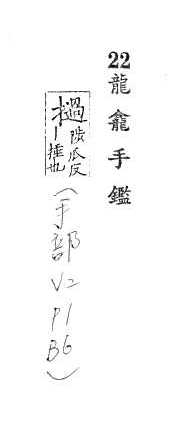 22 龍龕手鑑
撾 陟瓜反
｜捶也
(手部 V2 P1 B6)